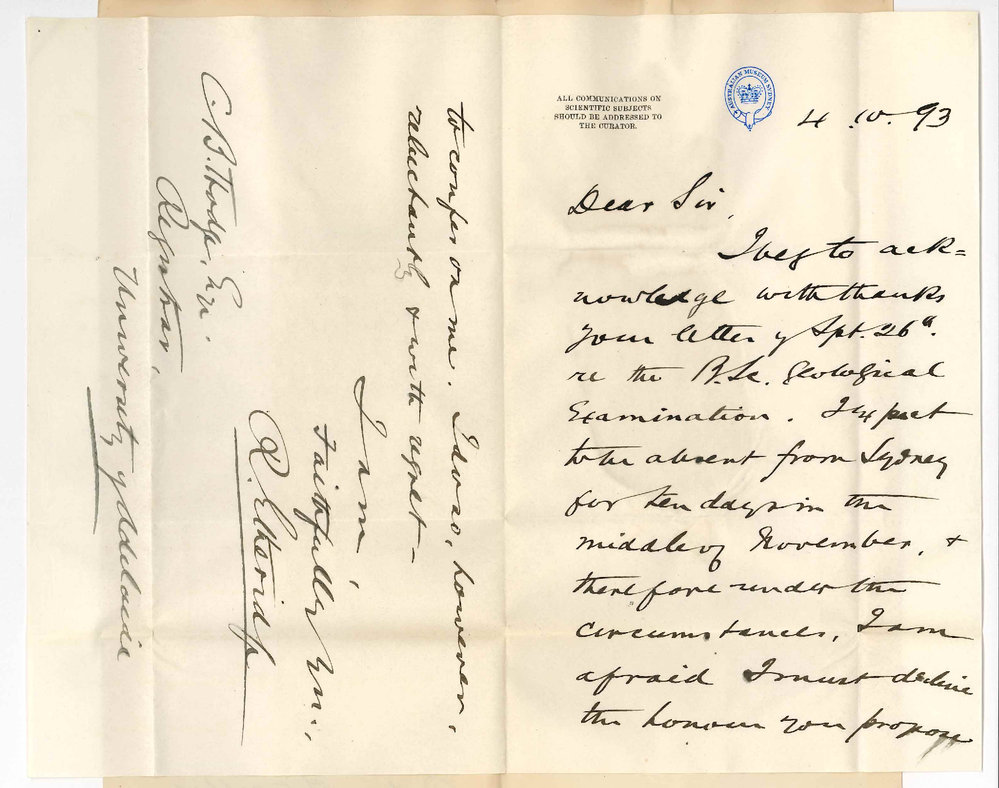 ALL COMMUNICATIONS ON
SCIENTIFIC SUBJECTS
SHOULD BE ADDRESSED TO
THE CURATOR.
AUSTRALIAN MUSEUM SYDNEY
4.10.93
Dear Sir,
I beg to ack=
nowledge with thanks
your letter of Spt. 26th.
re the B.Sc. Geological
Examination. I expect
to be absent from Sydney
for ten days in the
middle of November, &
therefore under the
circumstances, I am
afraid I must decline
the honour you propose
to confer on me. I do so, however,
reluctantly & with regret —
I am,
Faithfully Yrs.,
R. Etheridge
C. B. Hodge, Esq.
Registrar,
University of Adelaide